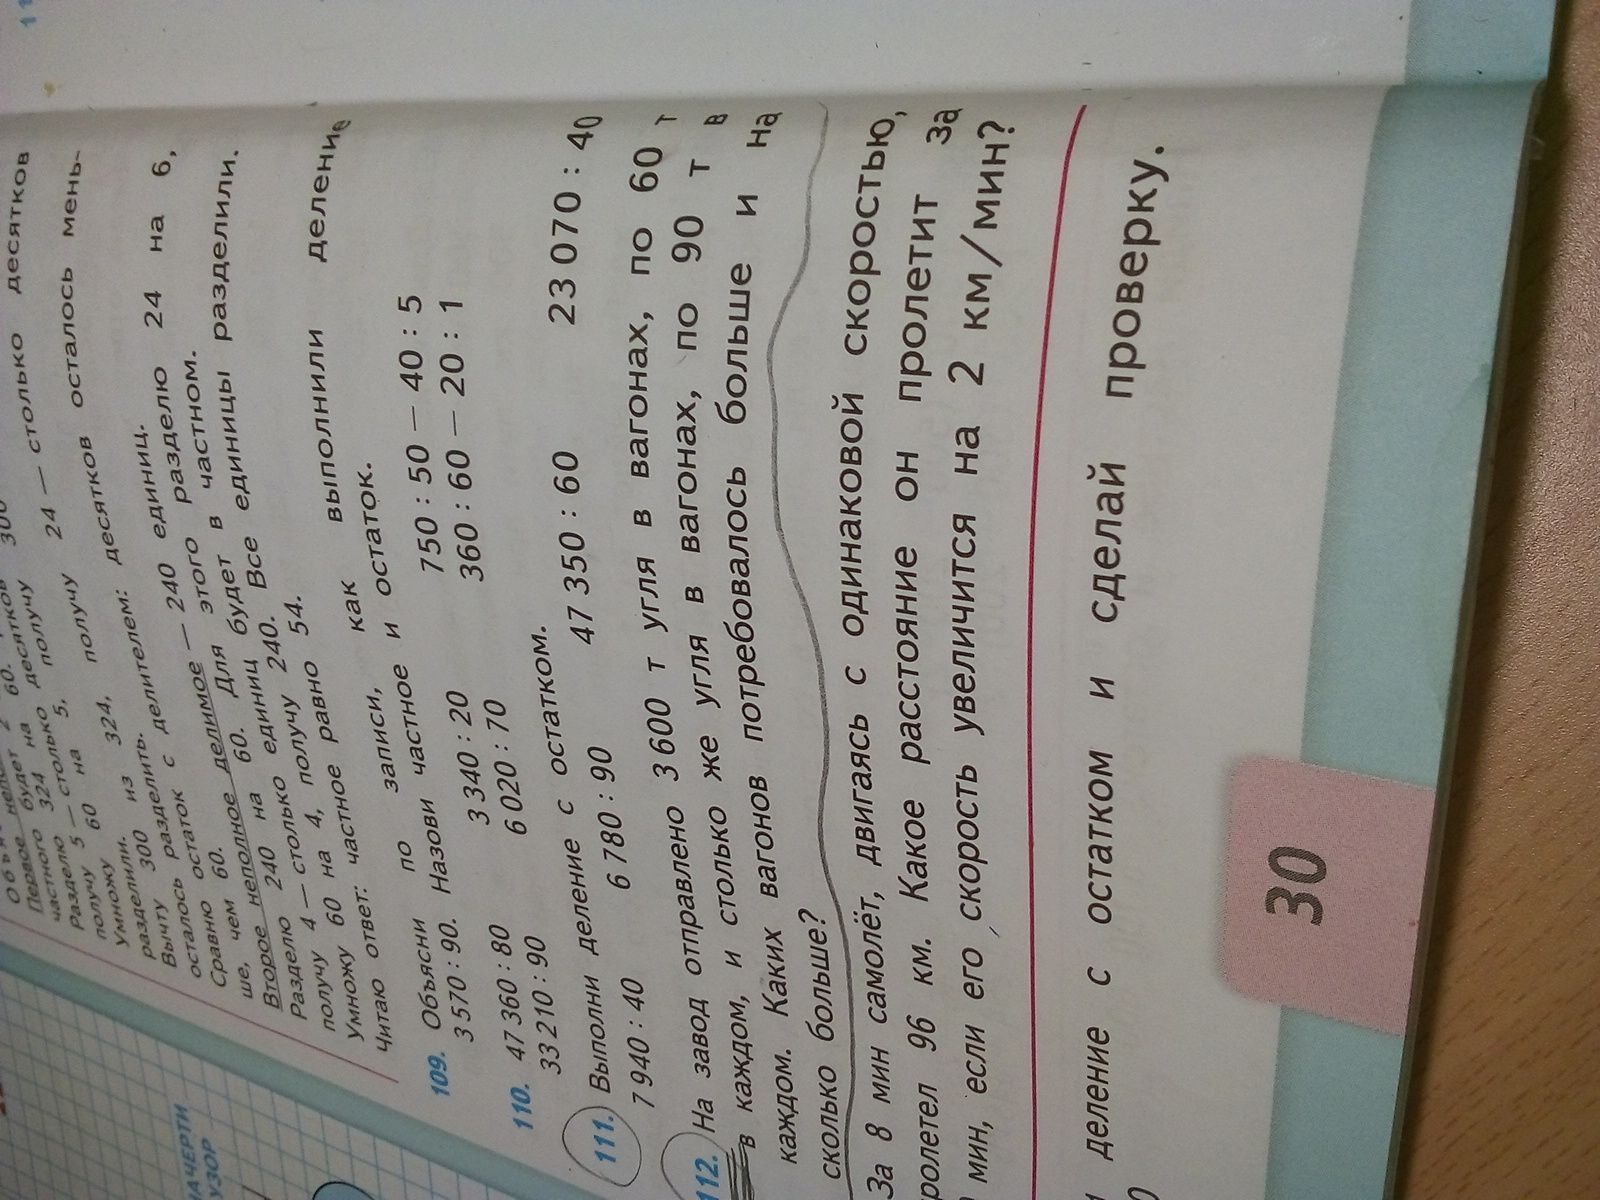 300
Первое неполное
будет на десятков
частного 324 только десятков
Разделю 5 — столько получу 24 — столько десятков
получу 60 на 5, получу осталось мень-
Умножу из 324, десятков
разделили.
300 разделить.
Вычту раздел с делителем: 240 единиц.
осталось остаток — 240 разделю 24 на 6,
Сравню 60. этого частном.
ше, чем 60. Для будет в единицы разделили.
Второе неполное делимое единиц 240. Все
Разделю 240 на получу 54.
получу 4 — столько равно
Умножу 60 на 4, частное
Читаю ответ: частное
109. Объясни по записи, как выполнили деление
3 570 : 90. Назови частное и остаток.
110. 47 360 : 80 3 340 : 20 750 : 50 — 40 : 5
33 210 : 90 6 020 : 70 360 : 60 — 20 : 1
111. Выполни деление с остатком.
7 940 : 40 6 780 : 90 47 350 : 60 23 070 : 40
112. На завод отправлено 3 600 т угля в вагонах, по 60 т
в каждом, и столько же угля в вагонах, по 90 т в
каждом. Каких вагонов потребовалось больше и на
сколько больше?
За 8 мин самолёт, двигаясь с одинаковой скоростью,
пролетел 96 км. Какое расстояние он пролетит за
мин, если его скорость увеличится на 2 км/мин?
деление с остатком и сделай проверку.
30
НАЧЕРТИ
УЗОР